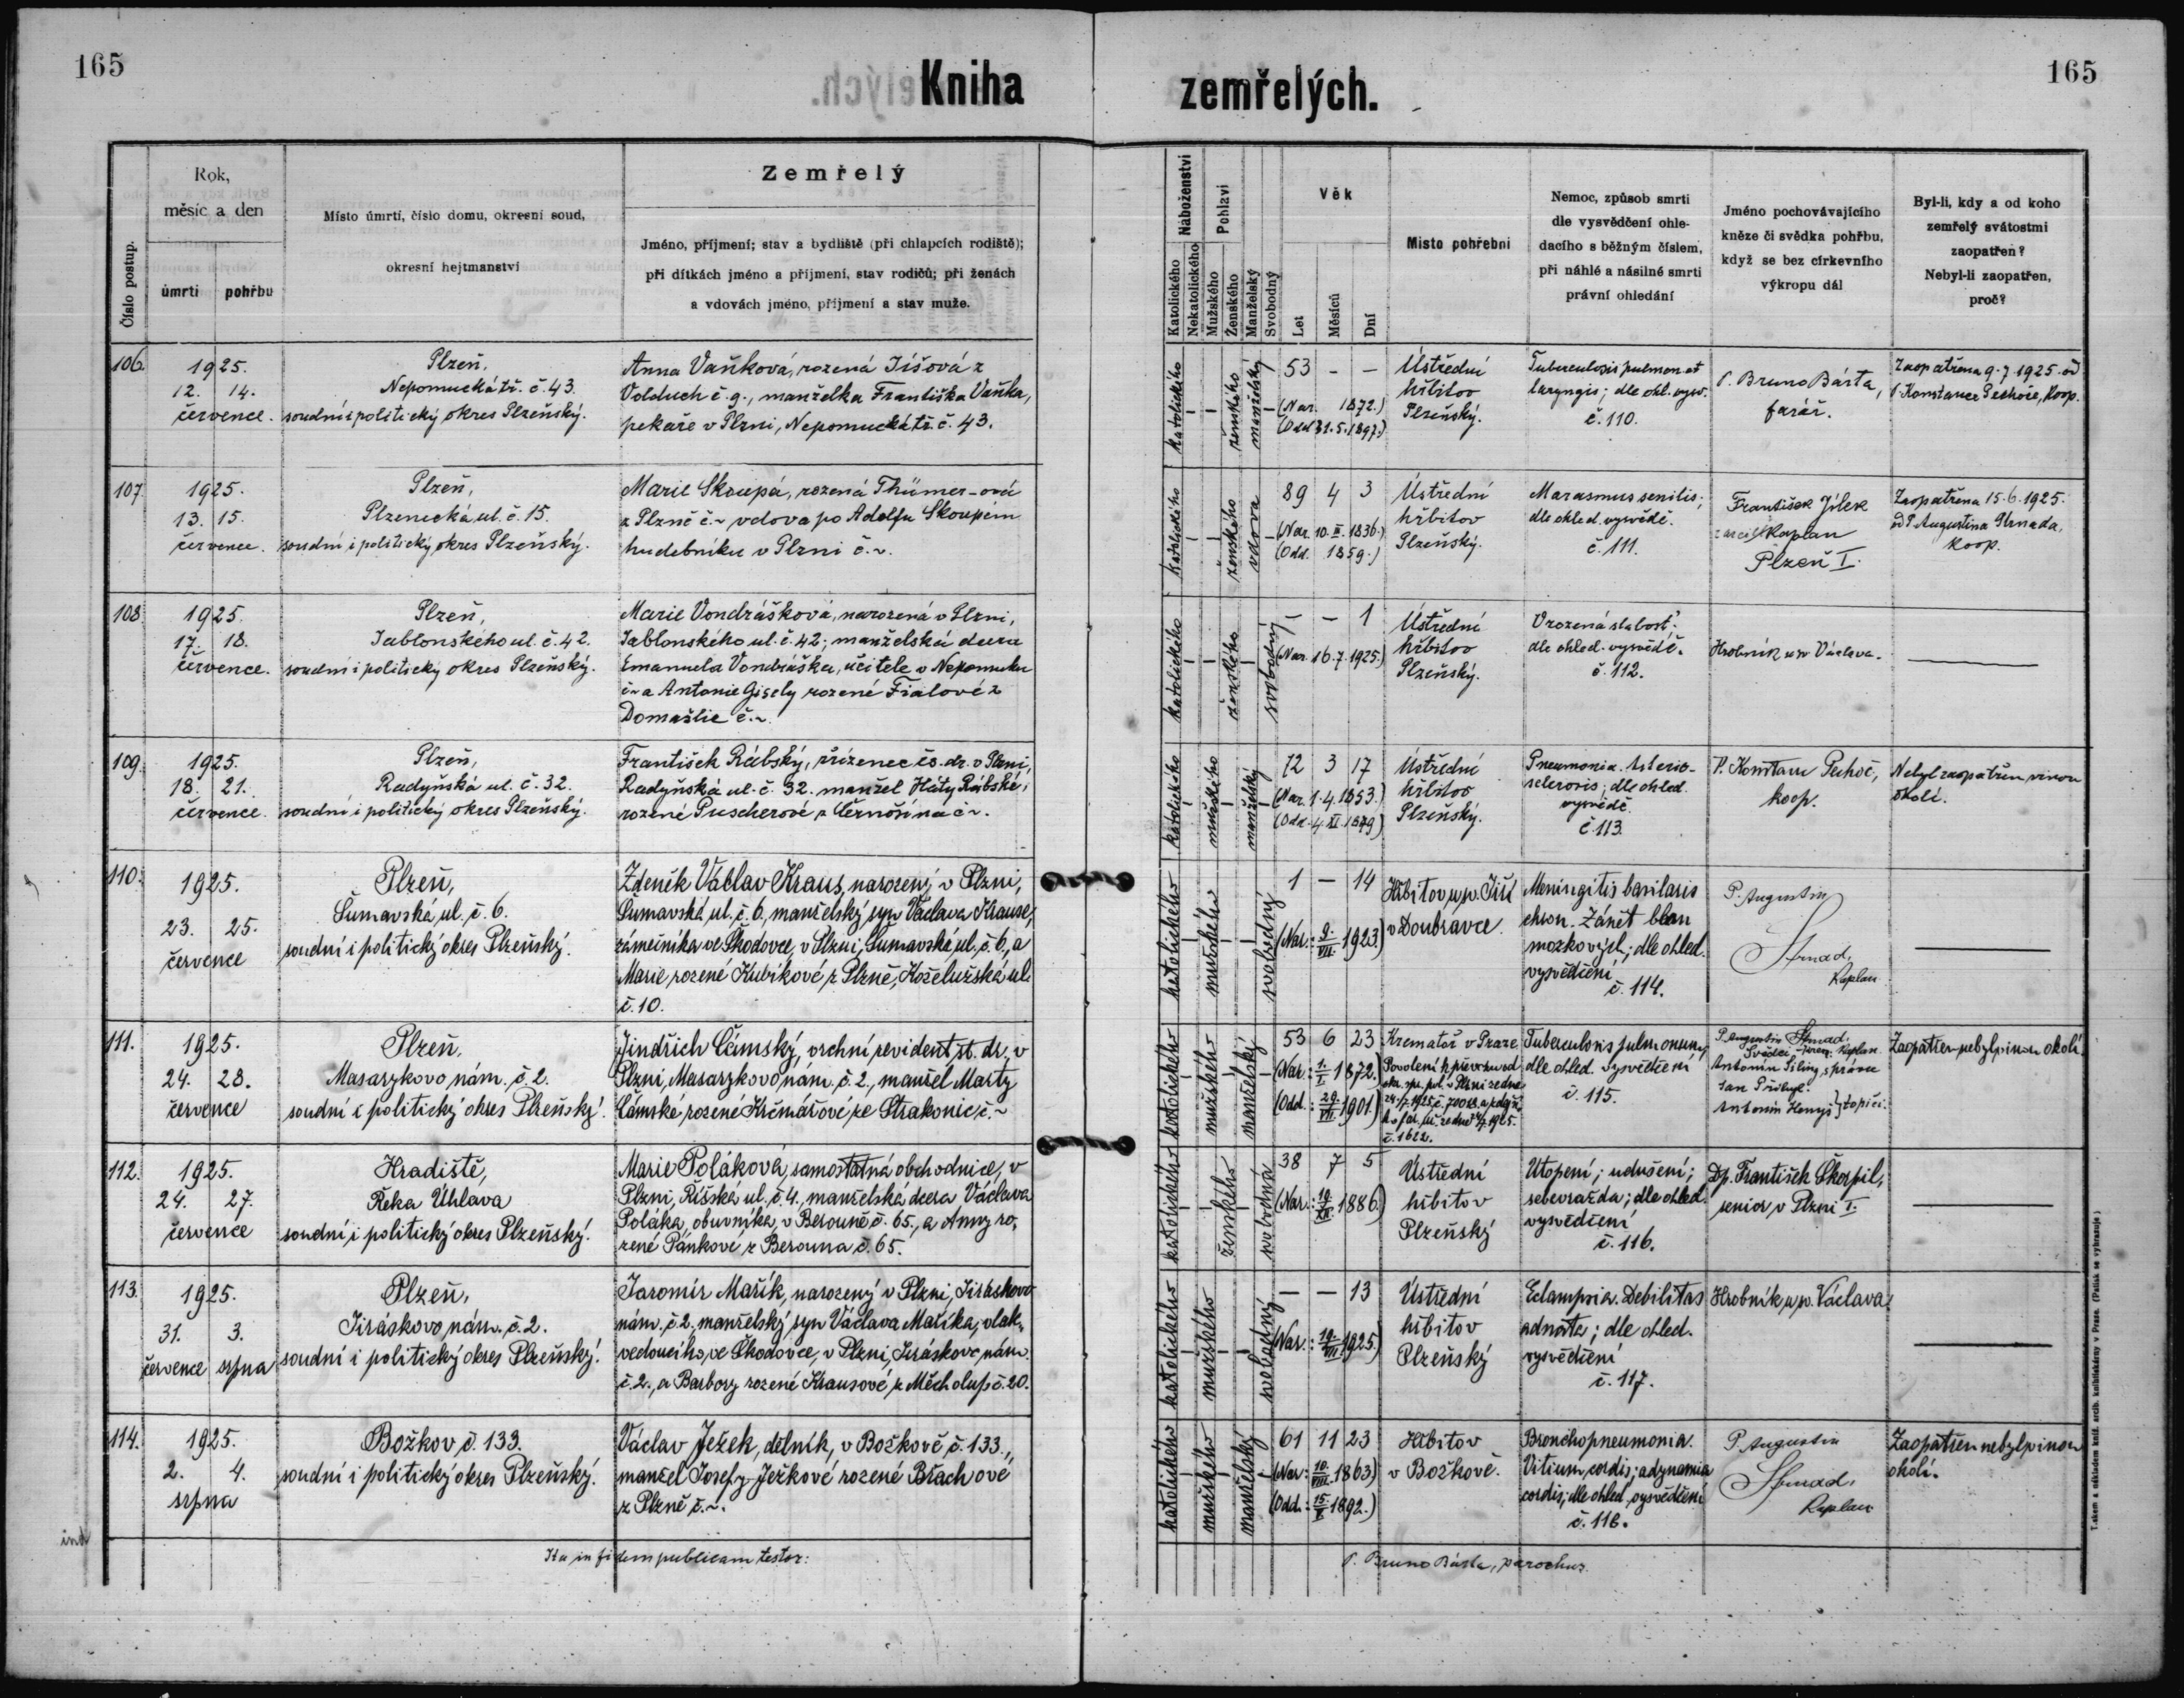 165
Kniha
zemřelých.
165
Číslo postup.
Rok,
měsíc a den
úmrtí
pohřbu
Místo úmrtí, číslo domu, okresní soud,
okresní hejtmanství
Zemřelý
Jméno, příjmení; stav a bydliště (při chlapcích rodiště);
při dítkách jméno a příjmení, stav rodičů; při ženách
a vdovách jméno, příjmení a stav muže.
Náboženství
Katolického
Nekatolického
Pohlaví
Mužského
Ženského
Manželský
Svobodný
Věk
Let
Měsíců
Dní
Místo pohřební
Nemoc, způsob smrti
dle vysvědčení ohle-
dacího s běžným číslem,
při náhlé a násilné smrti
právní ohledání
Jméno pochovávajícího
kněze či svědka pohřbu,
když se bez církevního
výkropu dál
Byl-li, kdy a od koho
zemřelý svátostmi
zaopatřen?
Nebyl-li zaopatřen,
proč?
106.
1925.
12. 14.
července.
Plzeň,
Nepomucká tř. č. 43.
soudní i politický okres Plzeňský.
Anna Vaňková, rozená Jíšová z
Volduch č. 9., manželka Františka Vaňka,
pekaře v Plzni, Nepomucká tř. č. 43.
katolického
ženského
manželský
53 - -
(Nar. 1872.)
(Odd. 31.5.1897.)
Ústřední
hřbitov
Plzeňský.
Tuberculosis pulmon. et
laryngis; dle ohl. vysv.
č. 110.
P. Bruno Bárta,
farář.
Zaopatřena 9.7.1925. od
P. Konstance Pechoče, koop.
107.
1925.
13. 15.
července.
Plzeň,
Plzenecká ul. č. 15.
soudní i politický okres Plzeňský.
Marie Skoupá, rozená Thümer-ová
z Plzně č. ~ vdova po Adolfu Skoupém
hudebníku v Plzni č. ~.
katolického
ženského
vdova
89 4 3
(Nar. 10. II. 1836.)
(Odd. 1859.)
Ústřední
hřbitov
Plzeňský.
Marasmus senilis;
dle ohled. vysvědč.
č. 111.
František Jílek
kaplan
Plzeň I.
Zaopatřena 15.6.1925.
od P. Augustina Strnada,
koop.
108.
1925.
17. 18.
července.
Plzeň,
Jablonského ul. č. 42.
soudní i politický okres Plzeňský.
Marie Vondrášková, narozená v Plzni,
Jablonského ul. č. 42; manželská dcera
Emanuela Vondráška, učitele v Nepomuku
č. ~ a Antonie Gisely rozené Fialové z
Domažlic č. ~.
katolického
ženského
svobodný
- - 1
(Nar. 16.7.1925.)
Ústřední
hřbitov
Plzeňský.
Vrozená slabosť;
dle ohled. vysvědč.
č. 112.
Hrobník u sv. Václava.
109.
1925.
18. 21.
července.
Plzeň,
Radyňská ul. č. 32.
soudní i politický okres Plzeňský.
František Rábský, zřízenec čs. dr. v Plzni,
Radyňská ul. č. 32. manžel Háty Rábské,
rozené Puscherové z Černošína č. ~.
katolického
mužského
manželský
72 3 17
(Nar. 1.4.1853.)
(Odd. 4. XI. 1879)
Ústřední
hřbitov
Plzeňský.
Pneumonia. Arterio-
sclerosis; dle ohled.
vysvědč.
č. 113.
P. Konstanc Pechoč,
koop.
Nebyl zaopatřen vinou
okolí.
110.
1925.
23. 25.
července
Plzeň,
Šumavská ul. č. 6.
soudní i politický okres Plzeňský.
Zdeněk Václav Kraus, narozený v Plzni,
Šumavská ul. č. 6, manželský syn Václava Krause,
zámečníka ve Škodovce, v Plzni, Šumavská ul. č. 6, a
Marie rozené Kubíkové z Plzně, Koželužská ul.
č. 10.
katolického
mužského
svobodný
1 - 14
(Nar.: 9./VII. 1923)
Hřbitov u sv. Jiří
v Doubravce.
Meningitis basilaris
chron. Zánět blan
mozkových; dle ohled.
vysvědčení
č. 114.
P. Augustin
Strnad,
kaplan
111.
1925.
24. 28.
července
Plzeň.
Masarykovo nám. č. 2.
soudní i politický okres Plzeňský.
Jindřich Čámský, vrchní revident st. dr., v
Plzni, Masarykovo nám. č. 2., manžel Marty
Čámské rozené Krčmářové ze Strakonic č. ~
katolického
mužského
manželský
53 6 23
(Nar.: 1./I. 1872.)
(Odd.: 29./VII. 1901.)
Kremator. v Praze
Povolení k převozu od
okr. spr. pol. v Plzni ze dne
Tuberculosis pulmonum;
dle ohled. vysvědčení
č. 115.
P. Augustin Strnad,
kaplan
Svědci
Antonín Šilíny, správce
Jan Přibyl
Antonín Henyš } topiči.
Zaopatřen nebyl vinou okolí
112.
1925.
24. 27.
července
Hradiště,
Řeka Úhlava
soudní i politický okres Plzeňský.
Marie Poláková, samostatná obchodnice, v
Plzni, Říšská ul. č. 4., manželská dcera Václava
Poláka, obuvníka, v Berouně č. 65., a Anny ro-
zené Pánkové z Berouna č. 65.
katolického
ženského
svobodná
38 7 5
(Nar.: 19./XII. 1886.)
Ústřední
hřbitov
Plzeňský
Utopení; udušení;
sebevražda; dle ohled.
vysvědčení
č. 116.
Dp. František Škorpil,
senior v Plzni I.
113.
1925.
31. 3.
července srpna
Plzeň,
Jiráskovo nám. č. 2.
soudní i politický okres Plzeňský.
Jaromír Mařík, narozený v Plzni, Jiráskovo
nám. č. 2. manželský syn Václava Maříka, vlak-
vedoucího, ve Škodovce, v Plzni, Jiráskovo nám.
č. 2., a Barbory rozené Krausové z Měcholup č. 20.
katolického
mužského
svobodný
- - 13
(Nar.: 19./VII. 1925.)
Ústřední
hřbitov
Plzeňský
Eclampsia. Debilitas
adnata; dle ohled.
vysvědčení
č. 117.
Hrobník u sv. Václava.
114.
1925.
2. 4.
srpna
Božkov č. 133.
soudní i politický okres Plzeňský.
Václav Ježek, dělník, v Božkově č. 133.,
manžel Josefy Ježkové rozené Břachové
z Plzně č. ~.
katolického
mužského
manželský
61 11 23
(Nar.: 10./VIII. 1863)
(Odd.: 15./X. 1892.)
Hřbitov
v Božkově.
Bronchopneumonia.
Vitium cordis; adynamia
cordis; dle ohled. vysvědčení
č. 118.
P. Augustin
Strnad,
kaplan
Zaopatřen nebyl vinou
okolí.
Ita in fidem publicam testor:
P. Bruno Bárta, parochus.
Tiskem a nákladem kníž. arcib. knihtiskárny v Praze. (Padělání se vyhrazuje)